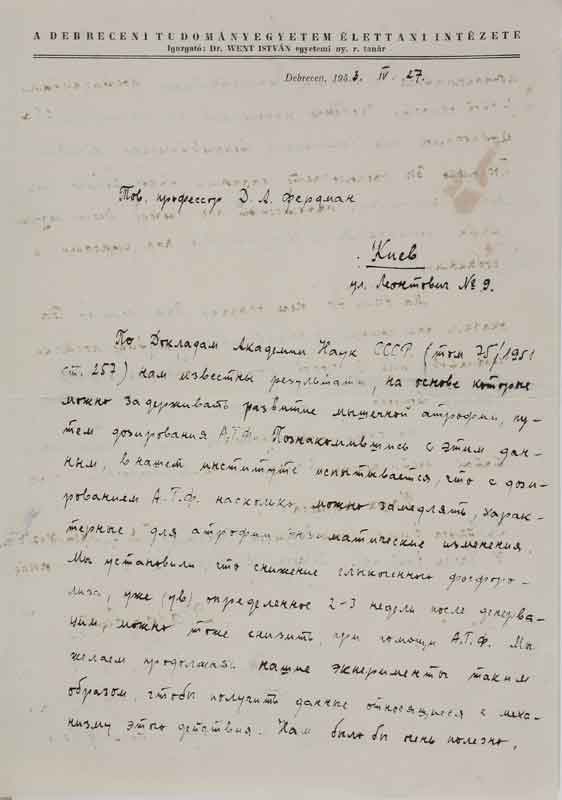 A DEBRECENI TUDOMÁNYEGYETEM ÉLETTANI INTÉZETE
Igazgató: Dr. WENT ISTVÁN egyetemi ny. r. tanár
Debrecen, 1953. IV. 27.
Тов. профессор Д. Л. Фердман
Киев
ул. Леонтович № 9.
По Докладам Академии Наук СССР (том 75/1951
ст. 257) нам известны результати, на основе которые
можно задерживать развитие мышечной атрофии, пу-
тем дозирования А.Т.Ф. Познакомившись с этим дан-
ным, в нашем институте испытывается, что с дози-
рованием А.Т.Ф. насколько можно замедлять, харак-
терные для атрофии, энзиматические изменения.
Мы установили, что снижение гликогенного фосфоро-
лиза, уже определенное 2-3 недели после денерва-
ции, можно тоже снизить, при помощи А.Т.Ф. Мы
желаем продолжая нашие экперименты таким
образом, чтобы получить данные относящиеся к меха-
низму этого действия. Нам было бы очень полезно,